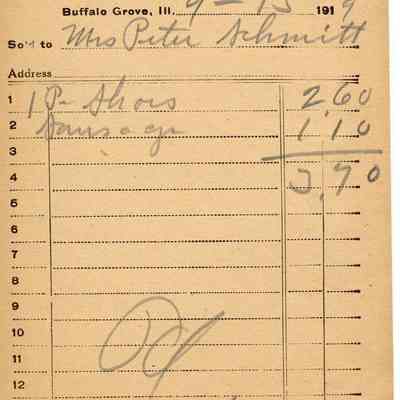 Buffalo Grove, Ill. 9-15 1919
So'd to Mrs Peter Schmitt
Address
1 1 Pr Shoes 2.60
2 Sausage 1.10
3
4 3.70
5
6
7
8
9
10
11
12